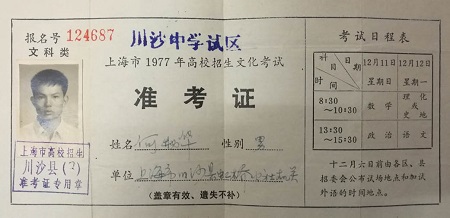 报名号 124687
文科类
川沙中学试区
上海市1977年高校招生文化考试
准考证
姓名 性别 男
单位
(盖章有效、遗失不补)
上海市高校招生
川沙县(7)
准考证专用章
考试日程表
科目 日期 时间 12月11日 星期日 12月12日 星期一
8:30~10:30 数学 理化或史地
13:30~15:30 政治 语文
十二月六日前由各区、县
招委会公布试场地点和加试
外语的时间地点。